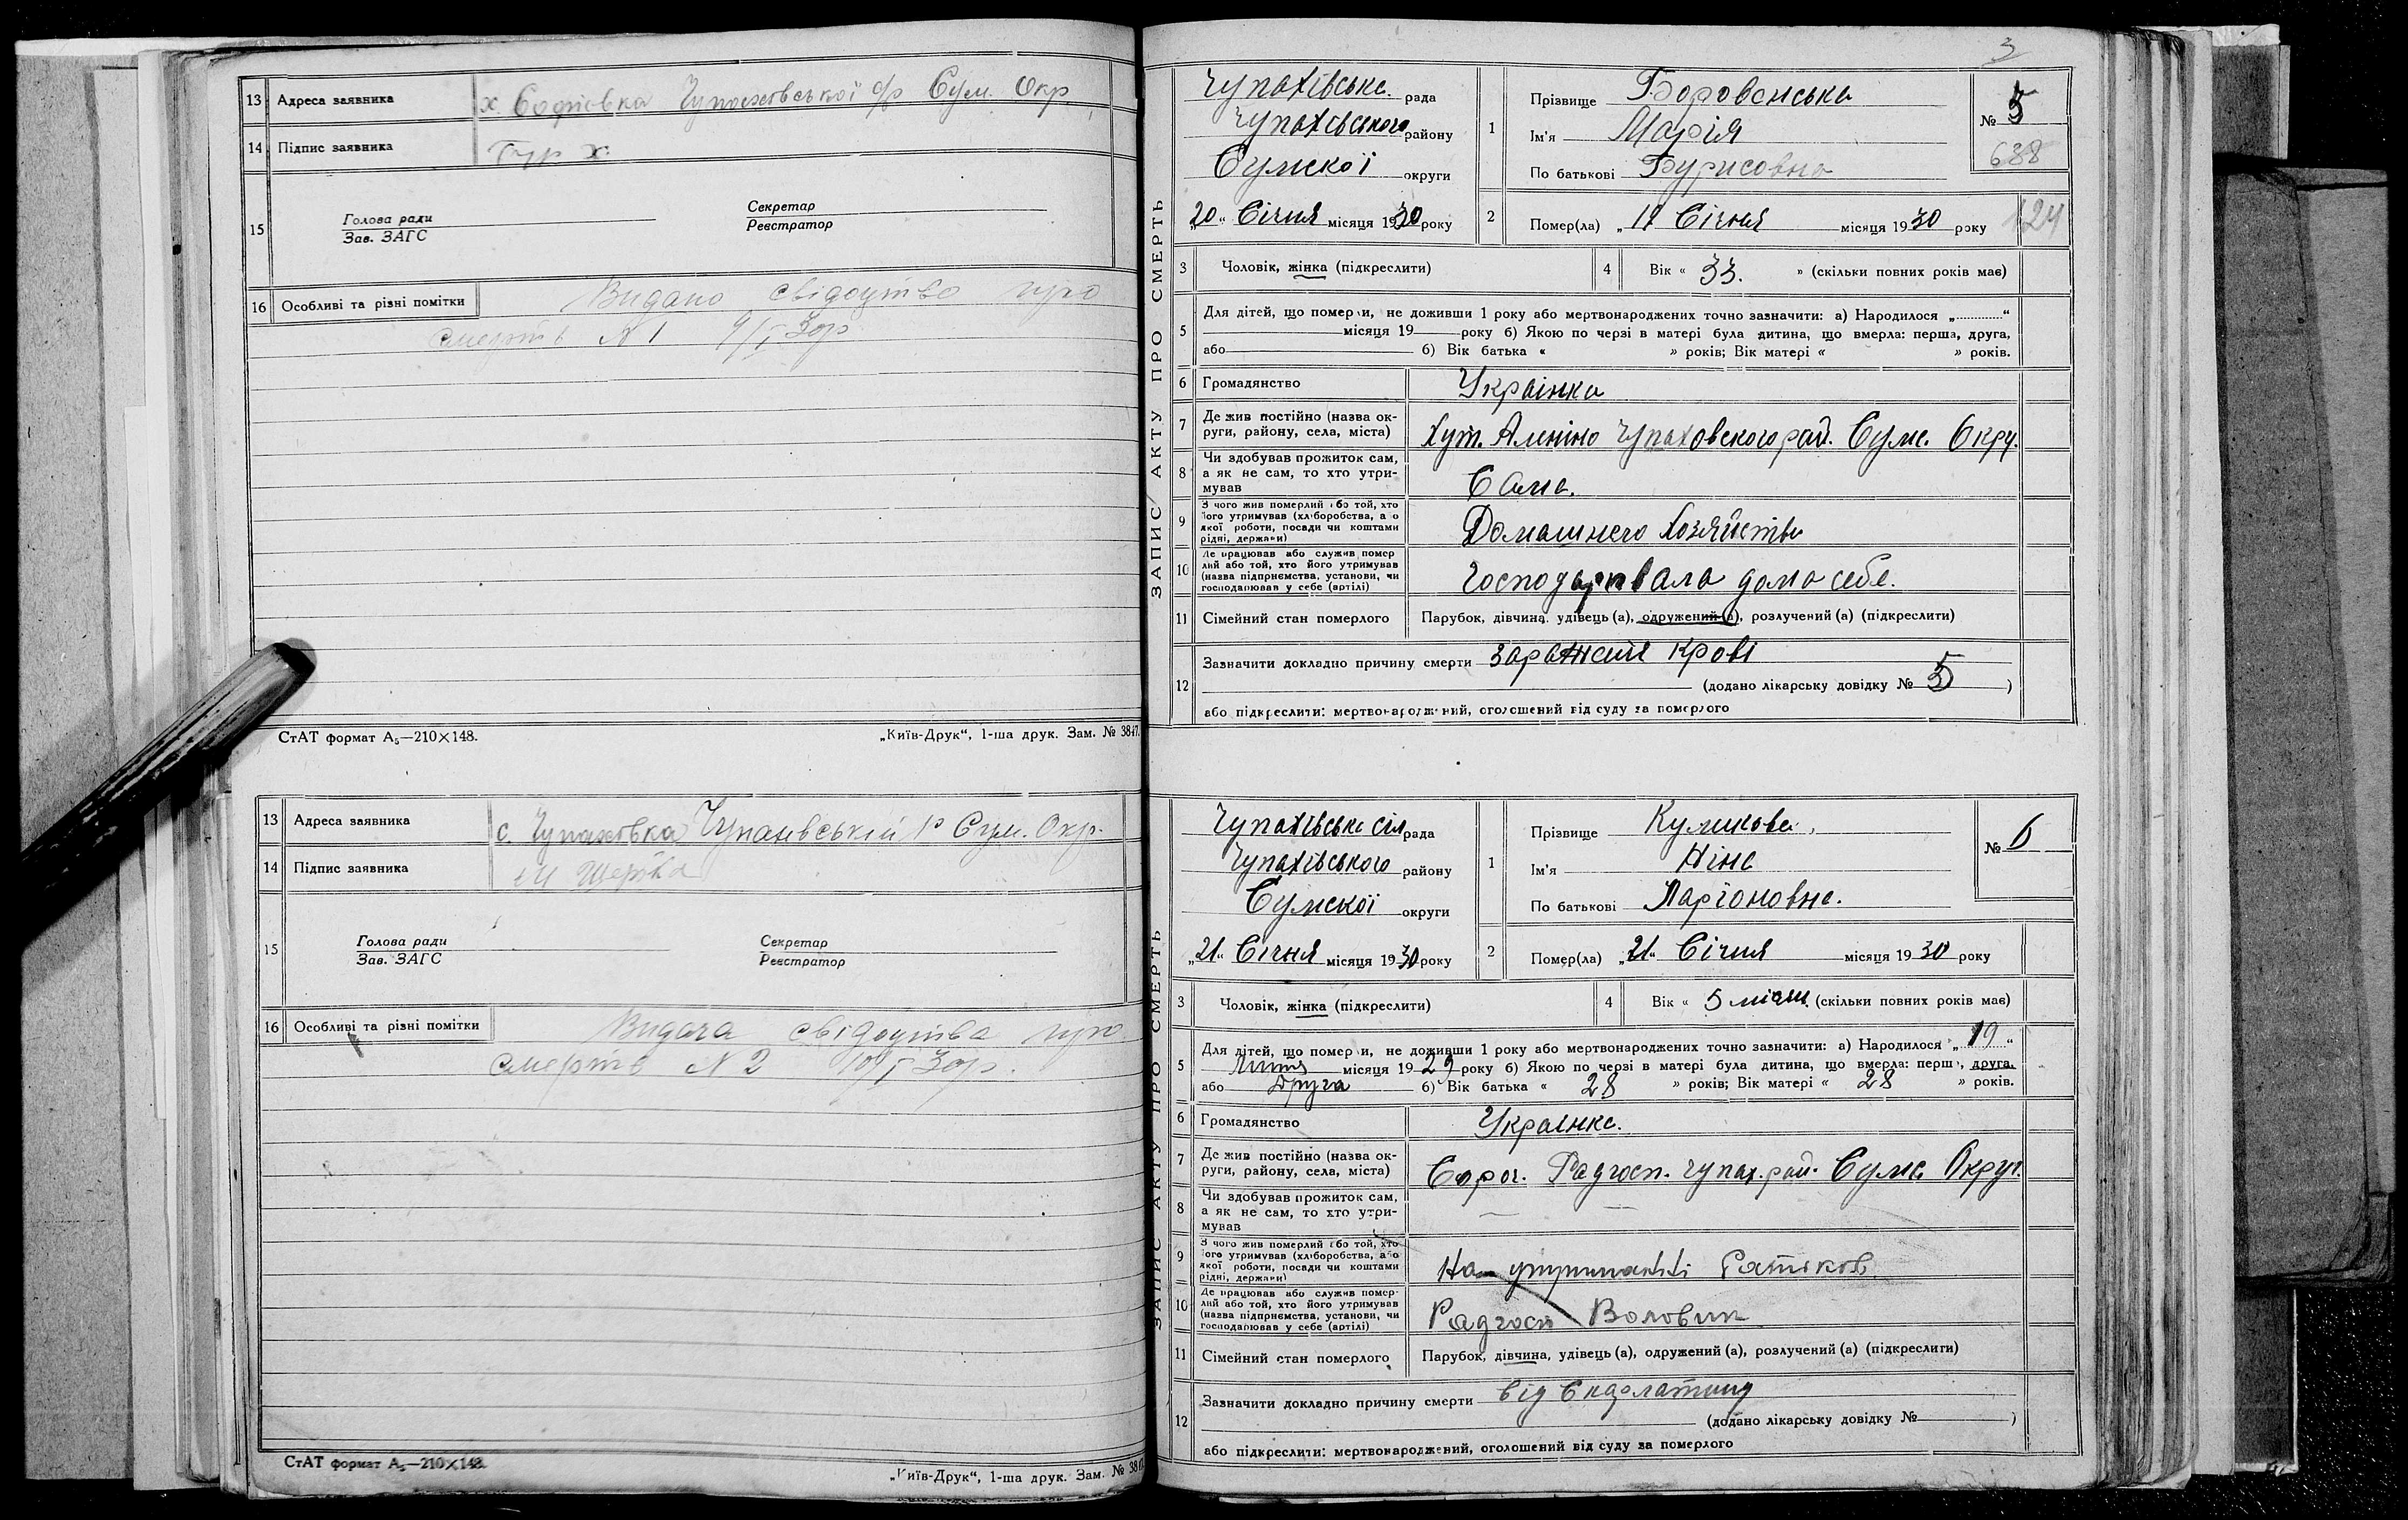 13 Адреса заявника х. Софіевка Чупахівської с/р Сум. Окр.
14 Підпис заявника Гур Х.
15
Голова ради
Зав. ЗАГС
Секретар
Реєстратор
16 Особливі та різні помітки Видано свідоцтво про
смерть N 1 9/I 30р
СтАТ формат А₅—210×148.
„Київ-Друк“, 1-ша друк. Зам. № 3847.
13 Адреса заявника с. Чупахівка Чупахівській р Сум. Окр.
14 Підпис заявника
15
Голова ради
Зав. ЗАГС
Секретар
Реєстратор
16 Особливі та різні помітки Видача свідоцтва про
смерть N 2 10/I 30р.
СтАТ формат А₅—210×148.
„Київ-Друк“, 1-ша друк. Зам. № 38
3
ЗАПИС АКТУ ПРО СМЕРТЬ
Чупахівська рада
Чупахівського району
Сумскої округи
„20“ Січня місяця 1930 року
1
Прізвище Боровенська
Ім'я Марія
По батькові Бурисовна
№ 5
688
2 Помер(ла) „ Січня місяця 1930 року
124
3 Чоловік, жінка (підкреслити)
4 Вік « 33. » (скільки повних років має)
5 Для дітей, що померли, не доживши 1 року або мертвонароджених точно зазначити: а) Народилося „............“
місяця 19 року б) Якою по черзі в матері була дитина, що вмерла: перша, друга,
або б) Вік батька « » років; Вік матері « » років.
6 Громадянство Украінка
7 Де жив постійно (назва округи, району, села, міста) Хут. Алніно Чупаховского рай. Сумс. Окру.
8 Чи здобував прожиток сам, а як не сам, то хто утримував Сама.
9 З чого жив померлий або той, хто його утримував (хліборобства, або якої роботи, посади чи коштами рідні, держави) Домашнего хозяйства
10 Де працював або служив померлий або той, хто його утримував (назва підприємства, установи, чи господарював у себе (артілі) Господарвала дома себе.
11 Сімейний стан померлого Парубок, дівчина, удівець (а), одружений (а), розлучений (а) (підкреслити)
12 Зазначити докладно причину смерти Заражения Крові
(додано лікарську довідку № 5 )
або підкреслити: мертвонароджений, оголошений від суду за померлого
ЗАПИС АКТУ ПРО СМЕРТЬ
Чупахівська сіл рада
Чупахівського району
Сумскої округи
„21“ Січня місяця 1930 року
1
Прізвище Куликова.
Ім'я Ніна
По батькові Ларіоновна.
№ 6
2 Помер(ла) „21“ Січня місяця 1930 року
3 Чоловік, жінка (підкреслити)
4 Вік « 5 місяц. (скільки повних років має)
5 Для дітей, що померли, не доживши 1 року або мертвонароджених точно зазначити: а) Народилося „19“
Липня місяця 1929 року б) Якою по черзі в матері була дитина, що вмерла: перша, друга,
або Друга б) Вік батька « 28 » років; Вік матері « 28 » років.
6 Громадянство Украінка.
7 Де жив постійно (назва округи, району, села, міста) Радгосп. Чупах. рай. Сумс. Округ.
8 Чи здобував прожиток сам, а як не сам, то хто утримував — —
9 З чого жив померлий або той, хто його утримував (хліборобства, або якої роботи, посади чи коштами рідні, держави) На утриманні батьков
10 Де працював або служив померлий або той, хто його утримував (назва підприємства, установи, чи господарював у себе (артілі) Радгосп
11 Сімейний стан померлого Парубок, дівчина, удівець (а), одружений (а), розлучений (а) (підкреслити)
12 Зазначити докладно причину смерти від Скарлатину
(додано лікарську довідку № )
або підкреслити: мертвонароджений, оголошений від суду за померлого